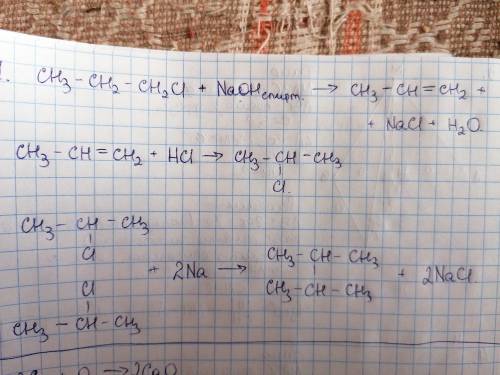 1. CH₃ – CH₂ – CH₂Cl + NaOH спирт. → CH₃ – CH = CH₂ +
+ NaCl + H₂O.
CH₃ – CH = CH₂ + HCl → CH₃ – CH – CH₃
|
Cl.
CH₃ – CH – CH₃
|
Cl
+ 2Na →
Cl
|
CH₃ – CH – CH₃
CH₃ – CH – CH₃
|
CH₃ – CH – CH₃
+ 2NaCl.
→ 2CaO